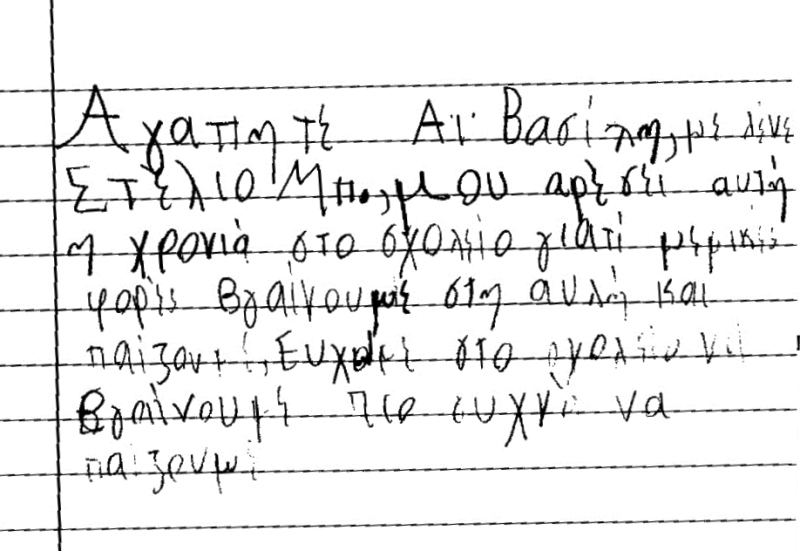 Αγαπητέ Αϊ Βασίλη, με λένε
Στέλιο Μπ., μου αρέσει αυτή
η χρονιά στο σχολείο γιατί μερικές
φορές βγαίνουμε στη αυλή και
παίζουμε, Εύχομε στο σχολείο να
Βγαίνουμε πιο συχνά να
παίζουμε